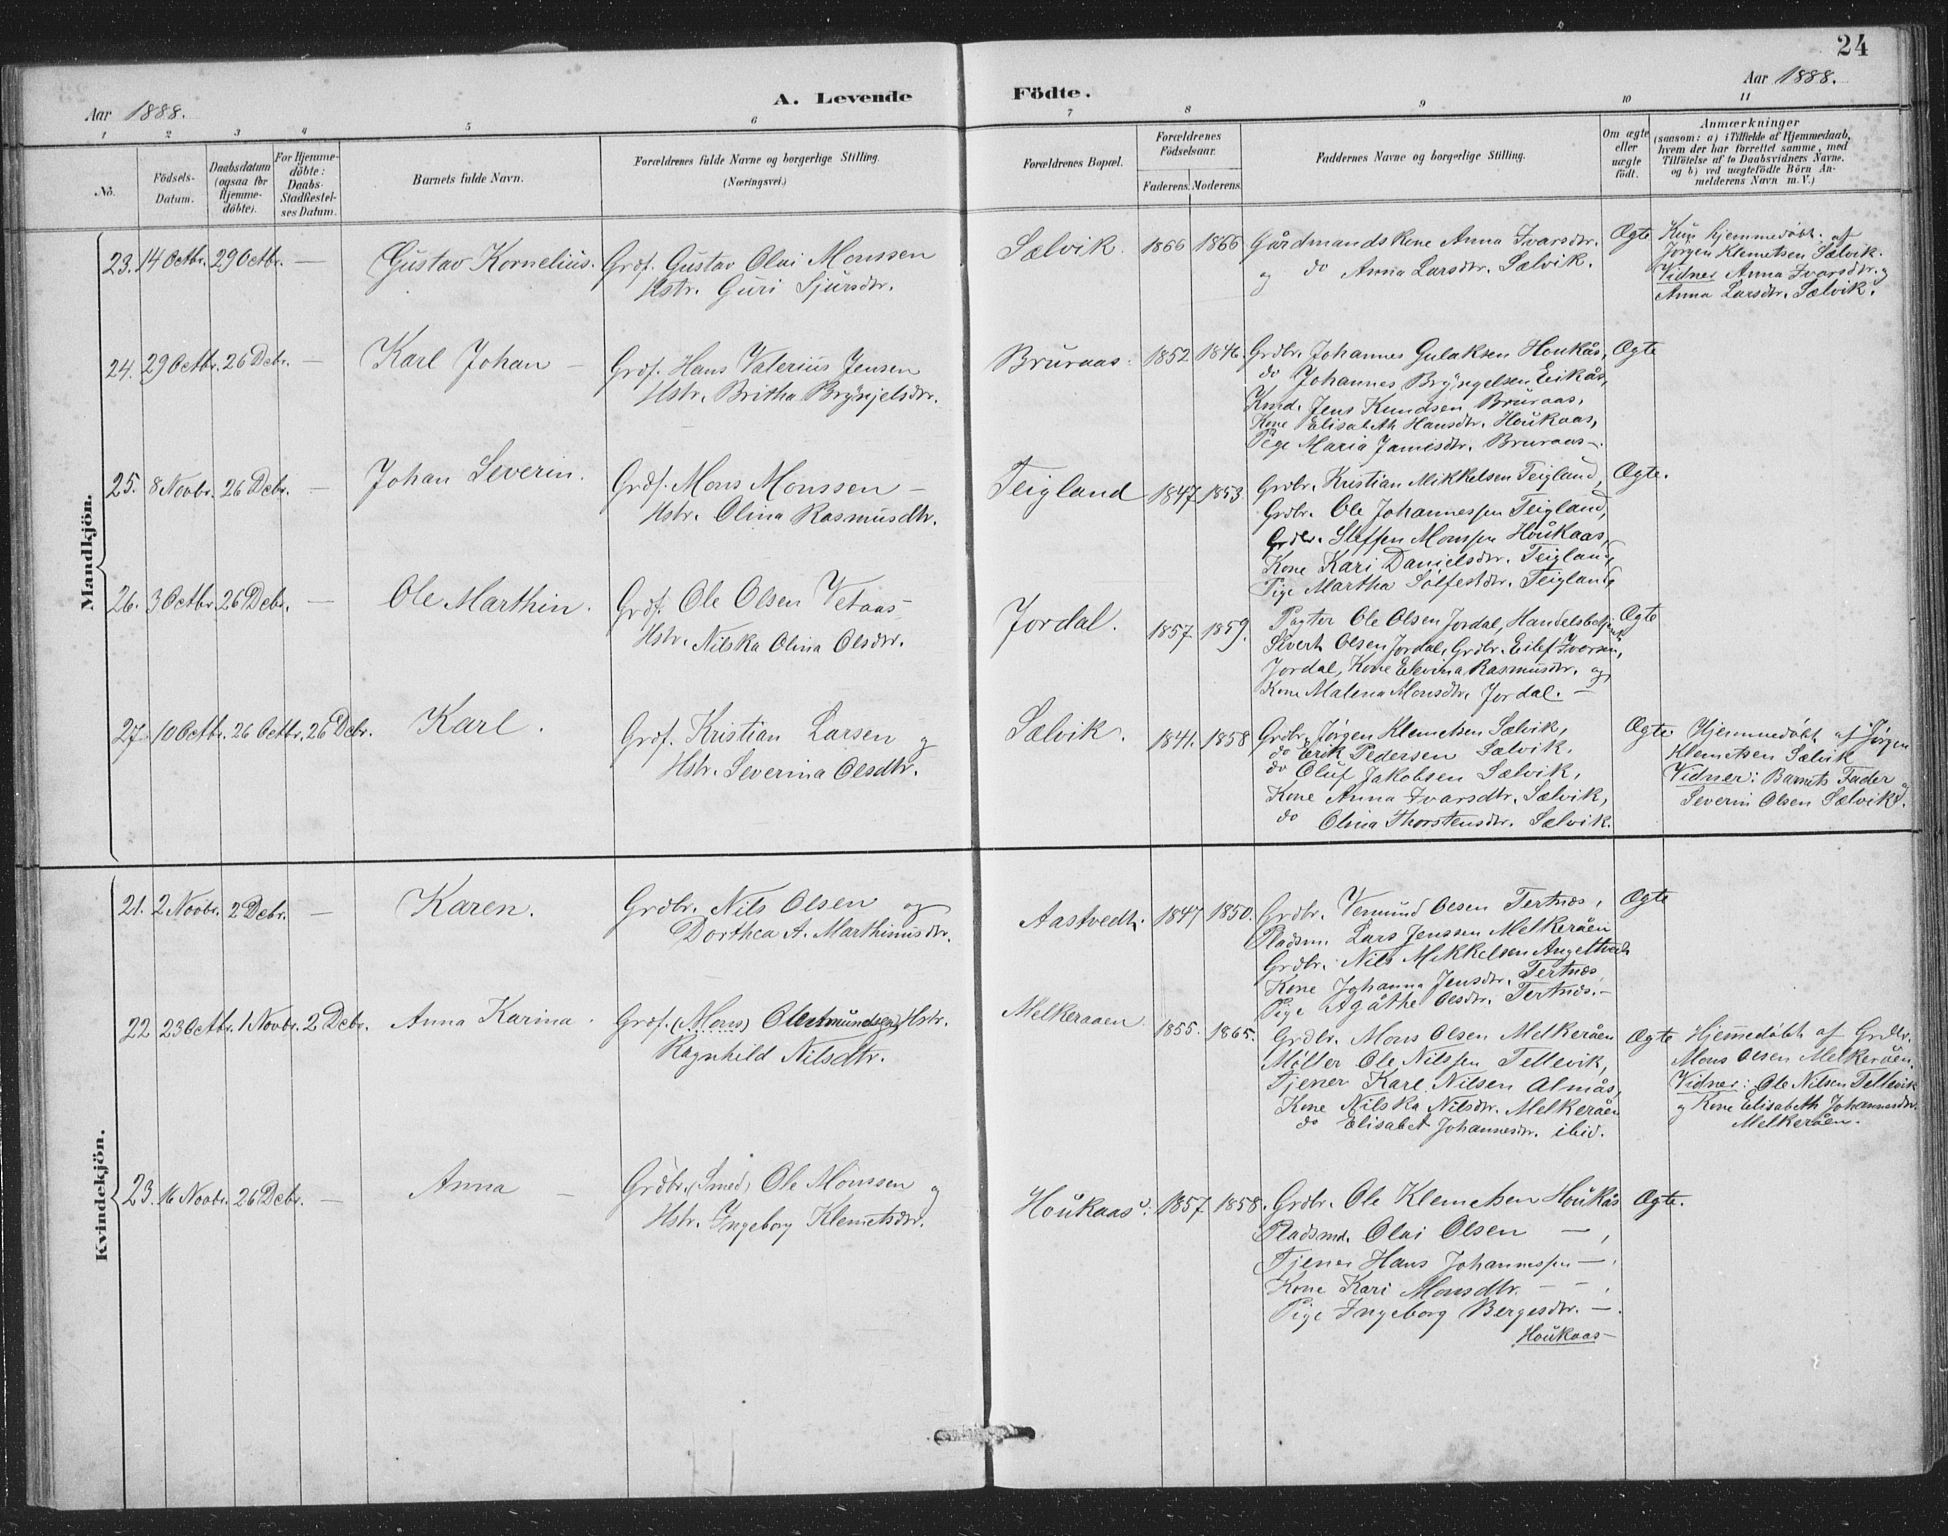 24
Aar 1888.
A. Levende Födte.
Aar 1888.
1 2 3 4 5 6 7 8 9 10 11
No.
Födsels-Datum.
Daabsdatum (ogsaa for Hjemme-döbte).
For Hjemme-döbte: Daabs-Stadfæstel-ses Datum.
Barnets fulde Navn.
Forældrenes fulde Navne og borgerlige Stilling.
(Næringsvei.)
Forældrenes Bopæl.
Forældrenes Födselsaar.
Faderens. Moderens.
Faddernes Navne og borgerlige Stilling.
Om ægte eller uægte födt.
Anmærkninger
(saasom: a) i Tilfælde af Hjemmedaab,
hvem der har forrettet samme, med
Tilföielse af to Daabsvidners Navne.
og b) ved uægtefödte Börn An-
melderens Navn m. V.)
Mandkjön.
23. 14 Octbr. 29 Octbr. — Gustav Kornelius. Grdf. Gustav Olai Monssen
Hstr. Guri Sjursdtr.
Sælvik. 1866 1866 Gårdmandskone Anna Ivarsdtr.
og do Anna Larsdtr. Sælvik.
Ægte
Kun hjemmedöbt. af
Jørgen Klemetsen Sælvik.
Vidner Anna Ivarsdtr. og
Anna Larsdtr. Sælvik.
24. 29 Octbr. 26 Debr. — Karl Johan — Grdf. Hans Valerius Jensen
Hstr. Britha Brynjelsdtr.
Bruraas. 1852 1846. Grdbr. Johannes Gulaksen Houkås,
do Johannes Bryngelsen Eikås,
Kmd. Jens Knudsen Bruraas,
Kone Elisabeth Hansdtr. Houkaas,
Pige Maria Jamesdtr. Bruraas—.
Ægte
25. 8 Novbr. 26 Debr. — Johan Severin. Grdf. Mons Monssen —
Hstr. Olina Rasmusdtr.
Teigland 1847 1853. Grdbr. Kristian Mikkelsen Teigland,
Grdbr. Ole Johannessen Teigland,
Grdbr. Steffen Monssen Houkaas,
Kone Kari Danielsdtr. Teigland,
Pige Martha Solfestdtr. Teigland,
Ægte.
26. 3 Octbr. 26 Debr. — Ole Marthin. Grdf. Ole Olsen Vetaas—
Hstr. Nilska Olina Olsdtr.
Jordal. 1857. 1859. Pagter Ole Olsen Jordal, Handelsbetjent
Sivert Olsen Jordal, Grdbr. Eilef Ivarsen,
Jordal, Kone Elevina Rasmusdtr. og
Kone Malena Monsdtr. Jordal. —
Ægte
27. 10 Octbr. 26 Octbr. 26 Debr. Karl. Grdf. Kristian Larsen og
Hstr. Severina Olsdtr.
Sælvik. 1841. 1858 Grdbr. Jørgen Klemetsen Sælvik,
do Erik Pedersen Sælvik.
do Oluf Jakobsen Sælvik,
Kone Anna Ivarsdtr. Sælvik,
do Olina Thorstensdtr. Sælvik.
Ægte
Hjemmedöbt af Jørgen
Klemetsen Sælvik
Vidner: Barnets Fader og
Severin Olsen Sælvik.
Kvindekjön.
21. 2 Novbr. 2 Debr. — Karen. Grdbr. Nils Olsen og
Dorthea A. Marthinusdtr.
Aastvedt. 1847 1850. Grdbr. Vemund Olsen Tertnæs,
Pladsm. Lars Jenssen Melkeråen
Grdbr. Nils Mikkelsen Angeltveit
Kone Johanna Jensdtr. Tertnæs
Pige Agathe Olsdtr. Tertnæs.—
Ægte
22 23 Octbr. 1 Novbr. 2 Debr. Anna Karina. Grdf. (Mons) Ole Amundsen, Hstr.
Ragnhild Nilsdtr.
Melkeraaen 1855. 1865. Grdbr. Mons Olsen Melkeråen
Møller Ole Nilssen Tellevik,
Tjener Karl Nilsen Almås,
Kone Nilska Nilsdtr. Melkeråen
do Elisabet Johannesdtr. ibid.
Ægte
Hjemmedöbt af Grdbr.
Mons Olsen Melkeråen.
Vidner: Ole Nilsen Tellevik
og Kone Elisabeth Johannesdtr.
Melkeråen.
23. 16 Novbr. 26 Debr. — Anna — Grdbr. (Smed) Ole Monssen og
Hstr. Ingeborg Klemetsdtr.
Houkaas. 1857 1858. Grdbr. Ole Klemetsen Houkås
Pladsmd. Olai Olsen —,
Tjener Hans Johannessen —,
Kone Kari Monsdtr. — —,
Pige Ingeborg Bergesdtr. —.
Houkaas—
Ægte.